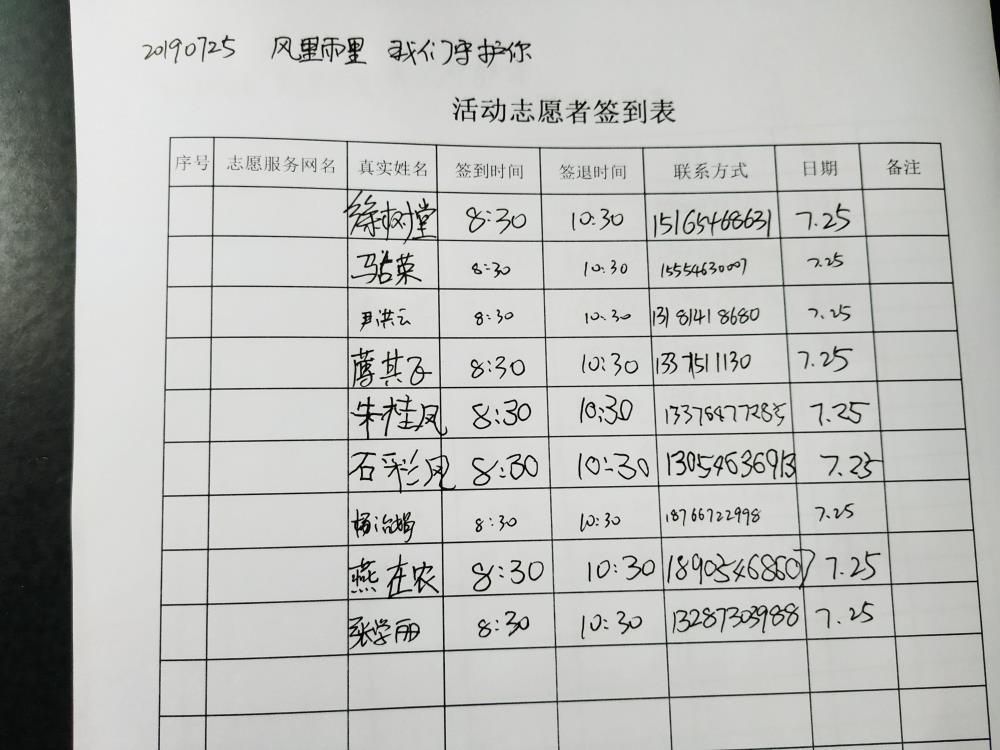 20190725 风里雨里 我们守护你
活动志愿者签到表
序号 志愿服务网名 真实姓名 签到时间 签退时间 联系方式 日期 备注
徐树堂 8:30 10:30 15165468631 7.25
马占荣 8:30 10:30 15554630007 7.25
尹洪云 8:30 10:30 13181418680 7.25
8:30 10:30 7.25
朱桂凤 8:30 10:30 13376477285 7.25
石彩凤 8:30 10:30 13054636913 7.25
8:30 10:30 18766722998 7.25
燕在农 8:30 10:30 18905468607 7.25
张学丽 8:30 10:30 13287303988 7.25